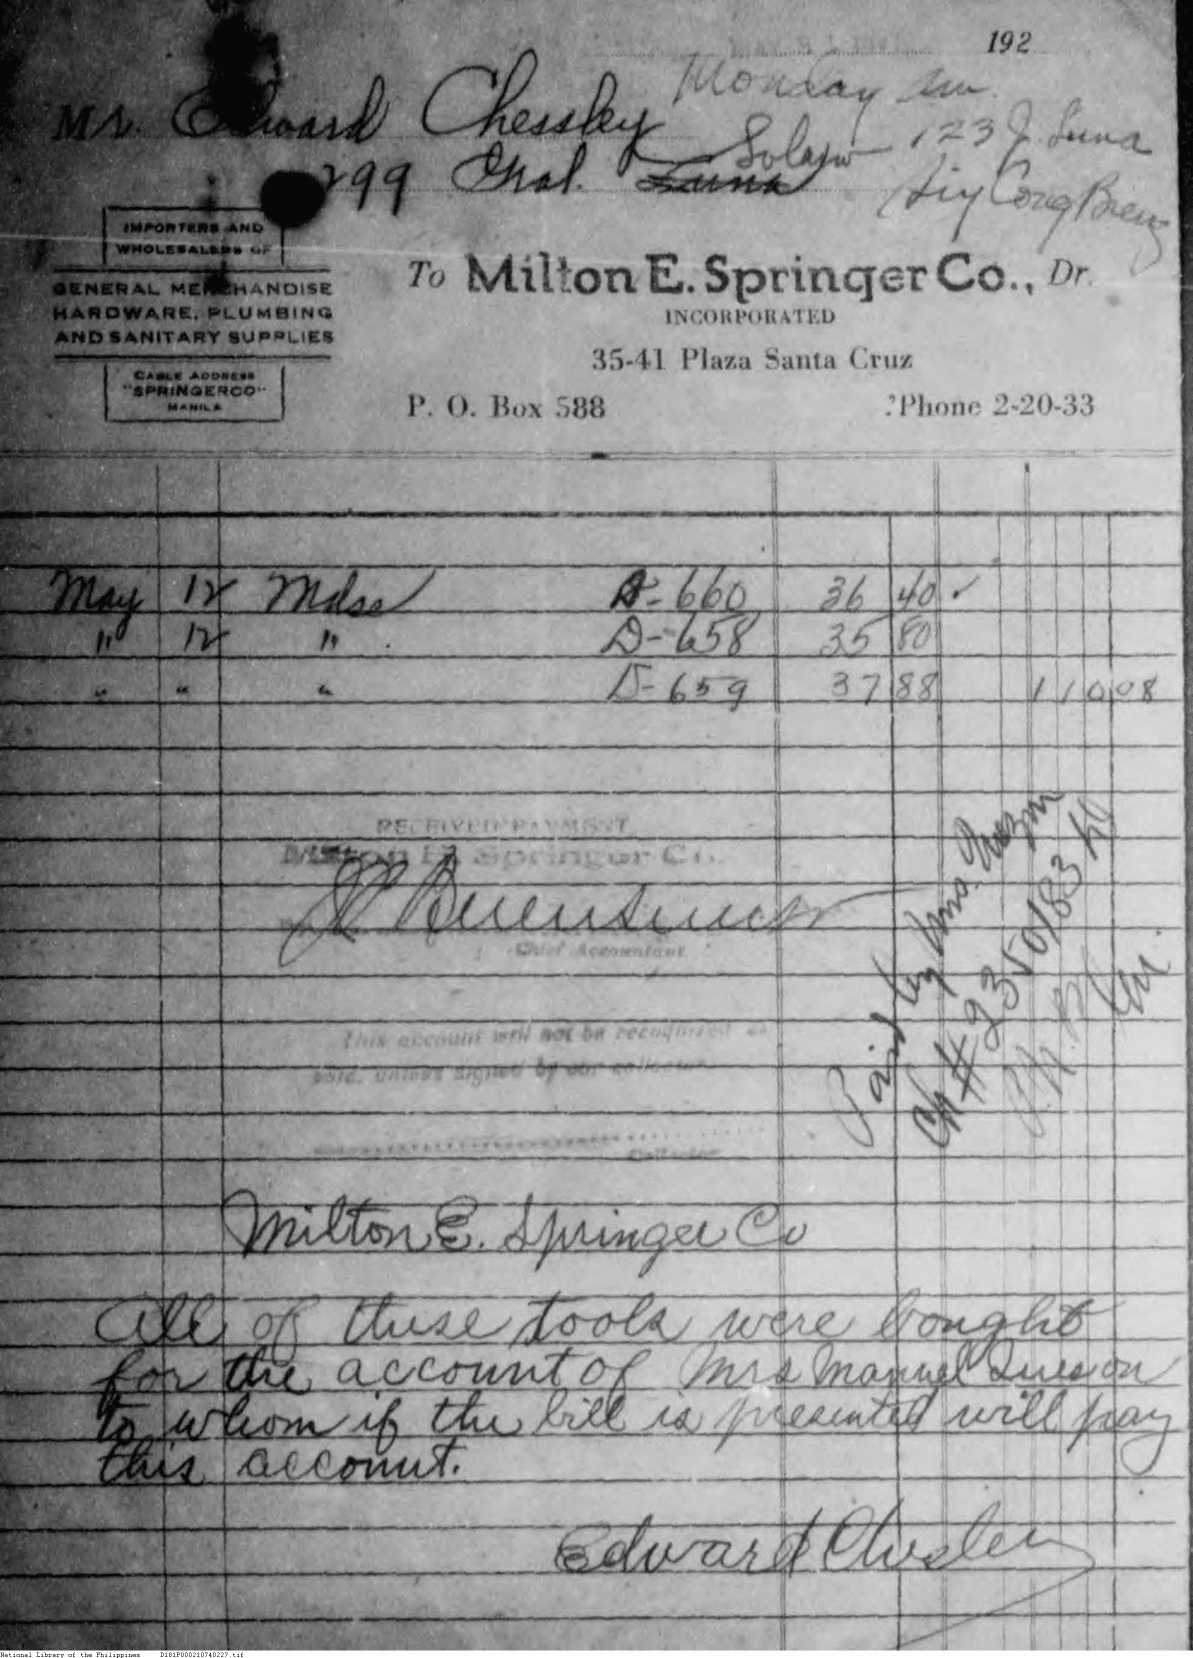 192
Monday am.
Mr. Edward Chessley
299 Gral. Luna Solano 123 J. Luna
IMPORTERS AND
WHOLESALERS OF
GENERAL MERCHANDISE
HARDWARE, PLUMBING
AND SANITARY SUPPLIES
CABLE ADDRESS
"SPRINGERCO"
MANILA
To Milton E. Springer Co., Dr.
INCORPORATED
35-41 Plaza Santa Cruz
P. O. Box 588 'Phone 2-20-33
May 12 Mdse D-660 36 40 ✓
" 12 " D-658 35 80
" " " D-659 37 88 110 08
RECEIVED PAYMENT
Milton E. Springer Co.
Chief Accountant
This account will not be recognized as
paid, unless signed by our collector.
Collector
Paid by Mrs. Quezon
Ch # 2350183
Milton E. Springer Co
All of these tools were bought
for the account of Mrs Manuel Quezon
to whom if the bill is presented will pay
this account.
Edward Chesley
National Library of the Philippines D181P000210740227.tif